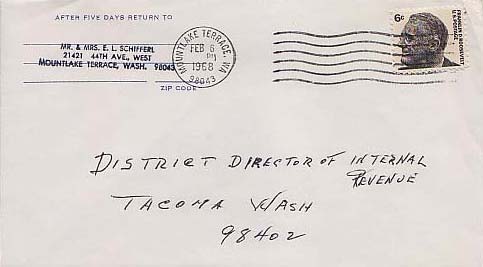 AFTER FIVE DAYS RETURN TO
MR. & MRS. E. L. SCHIFFERL
21421 44TH AVE., WEST
MOUNTLAKE TERRACE, WASH. 98043
ZIP CODE
MOUNTLAKE TERRACE, WA
FEB 6
PM
1968
98043
6¢
FRANKLIN D. ROOSEVELT
U.S. POSTAGE
DISTRICT DIRECTOR OF INTERNAL
REVENUE
TACOMA WASH
98402